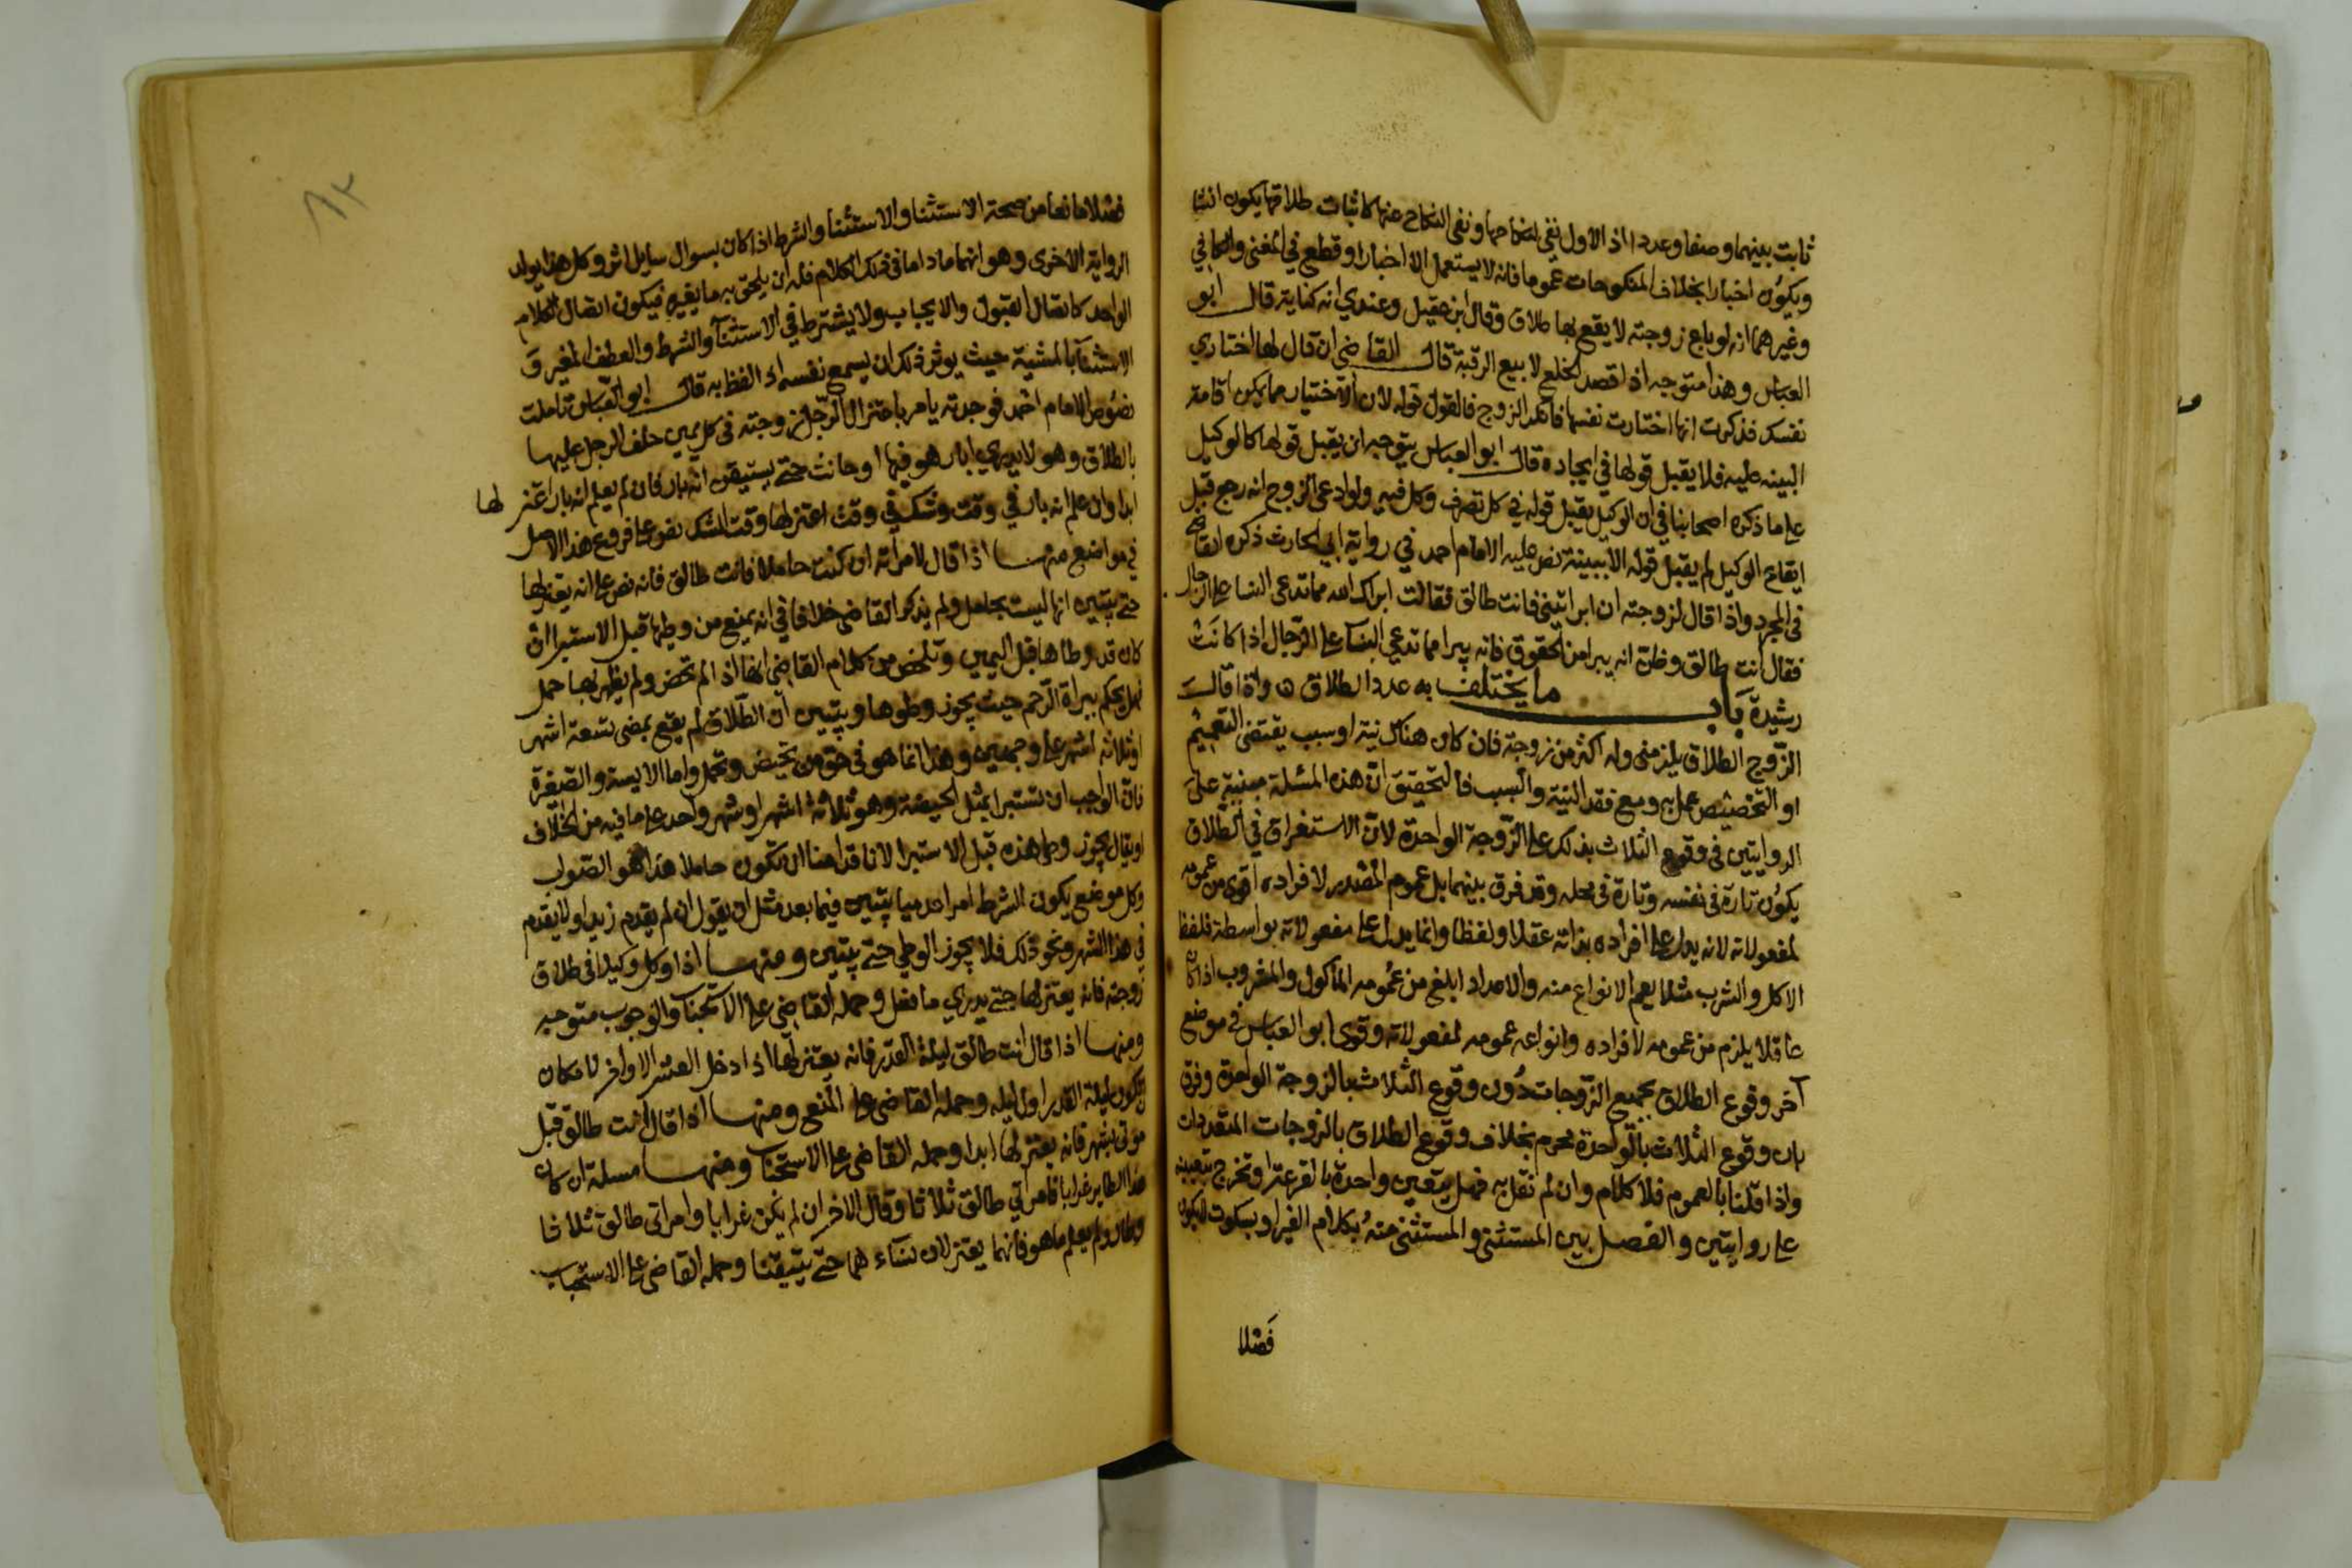 ثابت بينهما وصفا وعددا اذ الاول نفى لنكاحها ونفى النكاح عنها كاثبات طلاقها يكون انشا
ويكون اخبارا بخلاف المنكوحات عموما فانه لا يستعمل الا اخبارا وقطع في المغنى والكافي
وغيرهما انه لو باع زوجته لا يقع بها طلاق وقال ابن عقيل وعندي انه كناية قال ابو
العباس وهذا متوجه اذا قصد الخلع لا بيع الرقبة قال القاضي ان قال لها اختاري
نفسك فذكرت انها اختارت نفسها فانكر الزوج فالقول قوله لان الاختيار مما يمكن اقامة
البينه عليه فلا يقبل قولها في ايجاده قال ابو العباس يتوجه ان يقبل قولها كالوكيل
على ما ذكره اصحابنا في ان الوكيل يقبل قوله في كل تصرف وكل فيه ولو ادعى الزوج انه رجع قبل
ايقاع الوكيل لم يقبل قوله الا ببينة نص عليه الامام احمد في رواية ابي الحارث ذكره القاضي
في المجرد واذا قال لزوجته ان ابراتيني فانت طالق فقالت ابراك الله مما تدعي النسا على الرجال
فقال انت طالق وظن انه يبرا من الحقوق فانه يبرا مما تدعي النسا على الرجال اذا كانت
رشيدة باب ما يختلف به عدد الطلاق ه واذا قال
الزوج الطلاق يلزمني وله اكثر من زوجة فان كان هناك نية او سبب يقتضي التعميم
او التخصيص عمل به ومع فقد النية والسبب فالتحقيق ان هذه المسئلة مبنية على
الروايتين في وقوع الثلاث بذلك على الزوجة الواحدة لان الاستغراق في الطلاق
يكون تارة في نفسه وتارة في محله وقد فرق بينهما بل عموم المصدر لافراده اقوى من عمومه
لمفعولاته لانه يدل على افراده بذاته عقلا ولفظا وانما يدل على مفعولاته بواسطة فلفظ
الاكل والشرب مثلا يعم الانواع منه والاعداد ابلغ من عمومه الماكول والمشروب اذا كان
عاقلا يلزم من عمومه لافراده وانواعه عمومه لمفعولاته وقوى ابو العباس في موضع
آخر وقوع الطلاق بجميع الزوجات دون وقوع الثلاث بالزوجة الواحدة وفرق
بان وقوع الثلاث بالواحدة محرم بخلاف وقوع الطلاق بالزوجات المتعددات
واذا قلنا بالعموم فلا كلام وان لم نقل به فهل يتعين واحدة بالقرعة او تخرج بتعيينه
على روايتين والفصل بين المستثنى والمستثنى منه بكلام الغير او بسكوت لا يكون
فصلا
فصلا مانعا من صحة الاستثنا والاستثنا والشرط اذا كان بسوال سايل اثر وكل هذا يويد
الرواية الاخرى وهو انهما ما داما في ذلك الكلام فله ان يلحق به ما يغيره فيكون اتصال الكلام
الواحد كاتصال القبول والايجاب ولا يشترط في الاستثنا والشرط والعطف المغير و
الاستثنا بالمشية حيث يوثر ذلك ان يسمع نفسه اذ الفظ به قال ابو العباس تاملت
نصوص الامام احمد فوجدته يامر باعتزال الرجل زوجته في كل يمين حلف الرجل عليها
بالطلاق وهو لا يدري ابار هو فيها او حانث حتى يستيقن انه بار فان لم يعلم انه بار اعتزلها
ابدا وان علم انه بار في وقت وشك في وقت اعتزلها وقت الشك نص على فروع هذا الاصل
في مواضع منها اذا قال لامراته ان كنت حاملا فانت طالق فانه نص على انه يعتزلها
حتى يتبين انها ليست بحامل ولم يذكر القاضي خلافا في انه يمنع من وطيها قبل الاستبرا ان
كان قد وطاها قبل اليمين وتلخص من كلام القاضي انها اذ لم تحض ولم يظهر بها حمل
فهل يحكم ببراة الرحم حيث يجوز وطوها ويتبين ان الطلاق لم يقع بمضى تسعة اشهر
او ثلاثة اشهر على وجهين وهذا انما هو في حق من تحيض وتحمل واما الايسة والصغيرة
فان الواجب ان تستبرا بمثل الحيضة وهو ثلاثة اشهر او شهر واحد على ما فيه من الخلاف
او يقال يجوز وطي هذه قبل الاستبرا لانا قد امنا ان تكون حاملا هذا هو الصواب
وكل موضع يكون الشرط امرا عدميا يتبين فيما بعد مثل ان يقول ان لم يقدم زيد او لا يقدم
في هذا الشهر ونحو ذلك فلا يجوز الوطي حتى يتبين ومنها اذا وكل وكيلا في طلاق
زوجته فانه يعتزلها حتى يدري ما فعل وحمله القاضي على الاستحباب والوجوب متوجه
ومنها اذا قال انت طالق ليلة القدر فانه يعتزلها اذا دخل العشر الاواخر لامكان
ان تكون ليلة القدر اول ليله وحمله القاضي على المنع ومنها اذا قال انت طالق قبل
موتي بشهر فانه يعتزلها ابدا وحمله القاضي على الاستحباب ومنها مسئلة ان كان
هذا الطاير غرابا فامراتي طالق ثلاثا وقال الاخر ان لم يكن غرابا وامراتي طالق ثلاثا
وطار ولم يعلم ما هو فانهما يعتزلان نساءهما حتى يتيقنا وحمله القاضي على الاستحباب